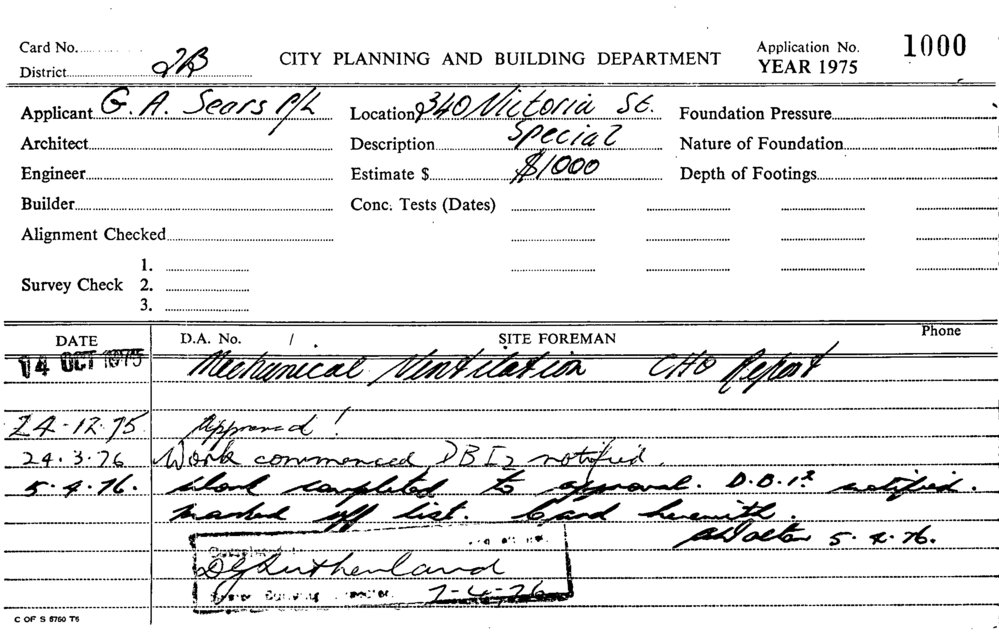 Card No. CITY PLANNING AND BUILDING DEPARTMENT Application No. 1000
District 2B YEAR 1975
Applicant G. A. Sears P/L Location 340 Victoria St. Foundation Pressure
Architect Description Special Nature of Foundation
Engineer Estimate $ $1000 Depth of Footings
Builder Conc. Tests (Dates)
Alignment Checked
1.
Survey Check 2.
3.
DATE D.A. No. / . SITE FOREMAN Phone
14 OCT 1975 Mechanical Ventilation CHO Report
24.12.75 Approved!
24.3.76 Work commenced DBI2 notified.
5.4.76. Work completed to approval. D.B.I.2 notified.
marked off list. Card herewith.
5.4.76.
DG Sutherland
7-4-76
C OF S 5760 T6